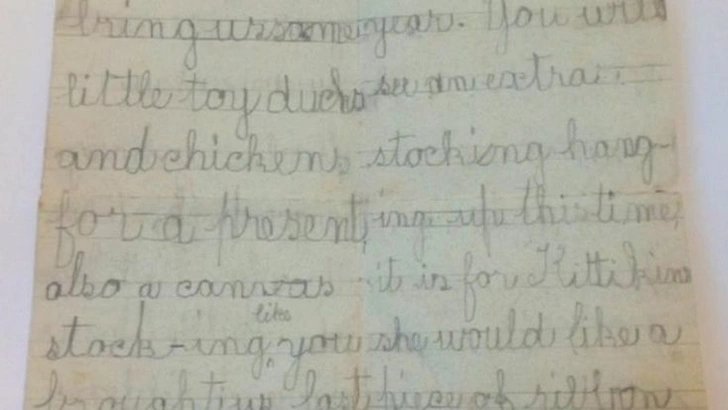 bring us some
little toy ducks
and chickens
for a present,
also a canvas
like
stock-ing you
brought us last
year. You will
see an extra
stocking hang-
ing up this time,
it is for Kittikins
she would like a
piece of ribbon